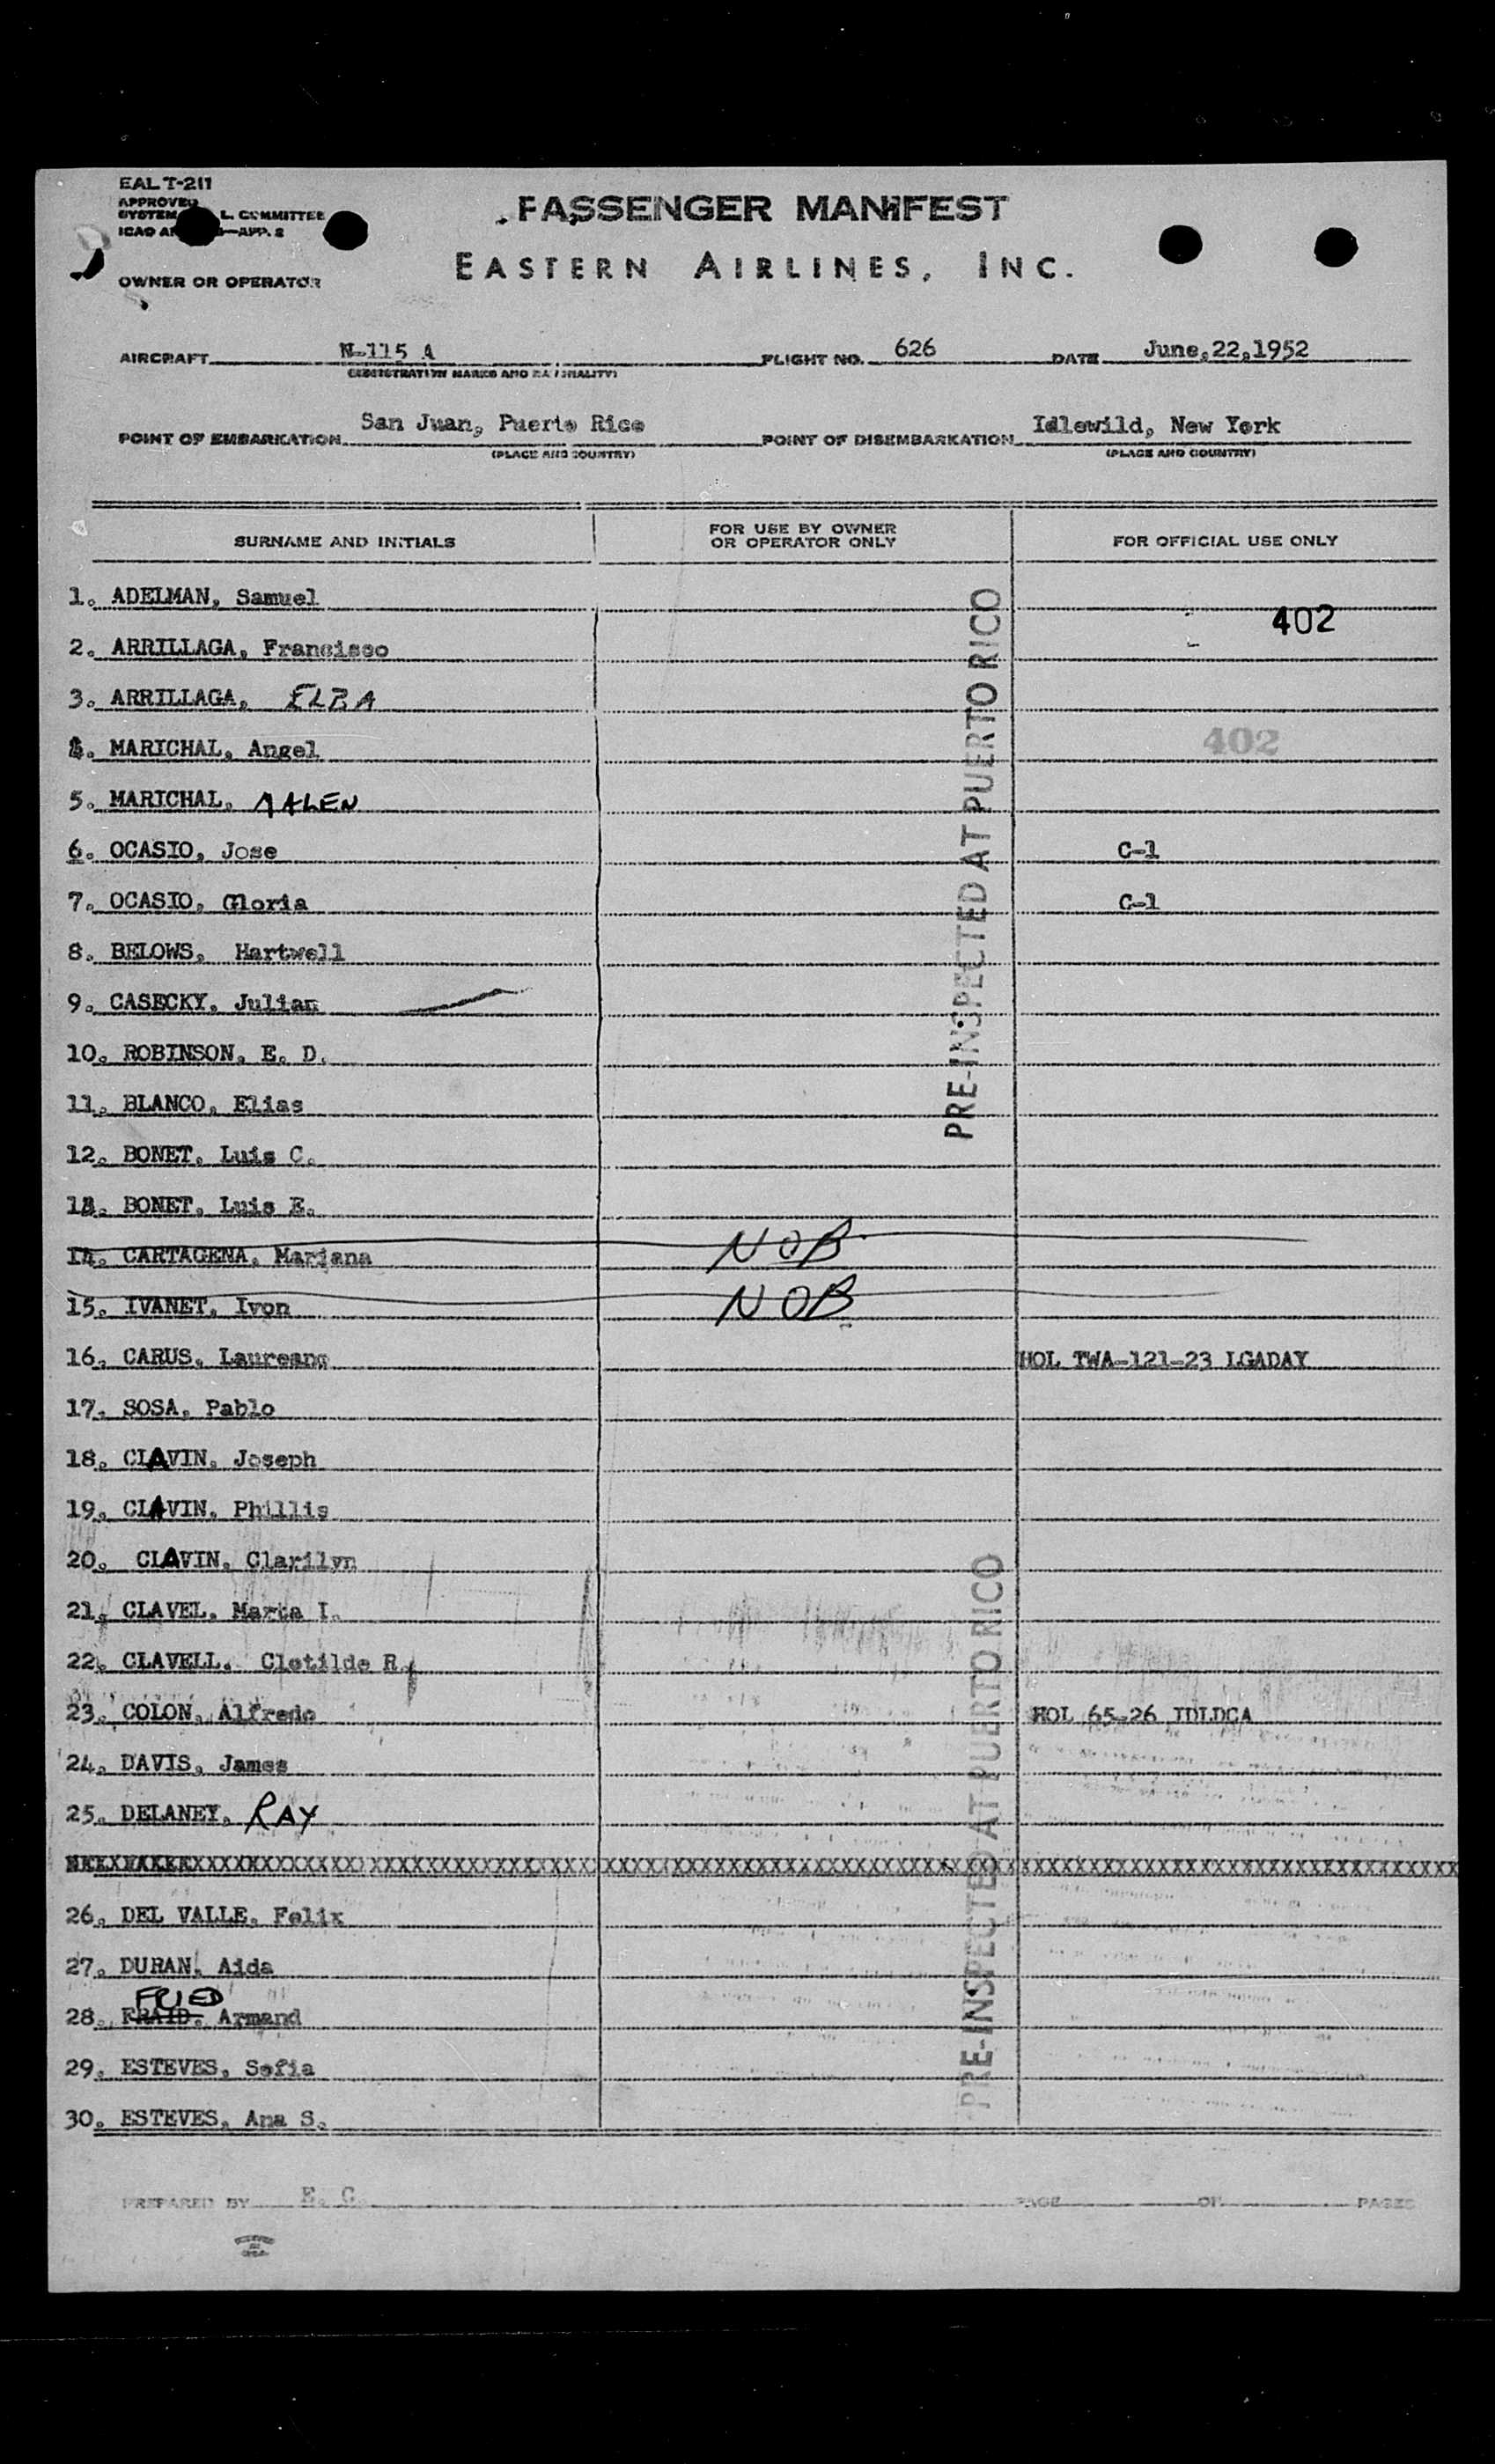 EAL T-211
APPROVED
SYSTEM L. COMMITTEE
ICAO —APP. 2
PASSENGER MANIFEST
EASTERN AIRLINES, INC.
OWNER OR OPERATOR
AIRCRAFT N-115 A FLIGHT NO. 626 DATE June,22,1952
(REGISTRATION MARKS AND NATIONALITY)
POINT OF EMBARKATION San Juan, Puerto Rico POINT OF DISEMBARKATION Idlewild, New York
(PLACE AND COUNTRY) (PLACE AND COUNTRY)
SURNAME AND INITIALS FOR USE BY OWNER OR OPERATOR ONLY FOR OFFICIAL USE ONLY
1. ADELMAN, Samuel
402
2. ARRILLAGA, Francisco
3. ARRILLAGA, ELBA
4. MARICHAL, Angel 402
5. MARICHAL,
6. OCASIO, Jose C-1
7. OCASIO, Gloria C-1
8. BELOWS, Hartwell
9. CASECKY, Julian
10. ROBINSON, E. D.
11. BLANCO, Elias
12. BONET, Luis C.
13. BONET, Luis E.
14. CARTAGENA, Mariana NOB
15. IVANET, Ivon NOB
16. CARUS, Laureano HOL TWA-121-23 LGADAY
17. SOSA, Pablo
18. CLAVIN, Joseph
19. CLAVIN, Phillis
20. CLAVIN, Clarilyn
21. CLAVEL, Marta I.
22. CLAVELL, Clotilde R.
23. COLON, Alfredo HOL 65-26 IDLDCA
24. DAVIS, James
25. DELANEY, RAY
26. DEL VALLE, Felix
27. DURAN, Aida
FRIED
28. FRAID, Armand
29. ESTEVES, Sofia
30. ESTEVES, Ana S.
PRE-INSPECTED AT PUERTO RICO
PRE-INSPECTED AT PUERTO RICO
PREPARED BY E. C. PAGE OF PAGES